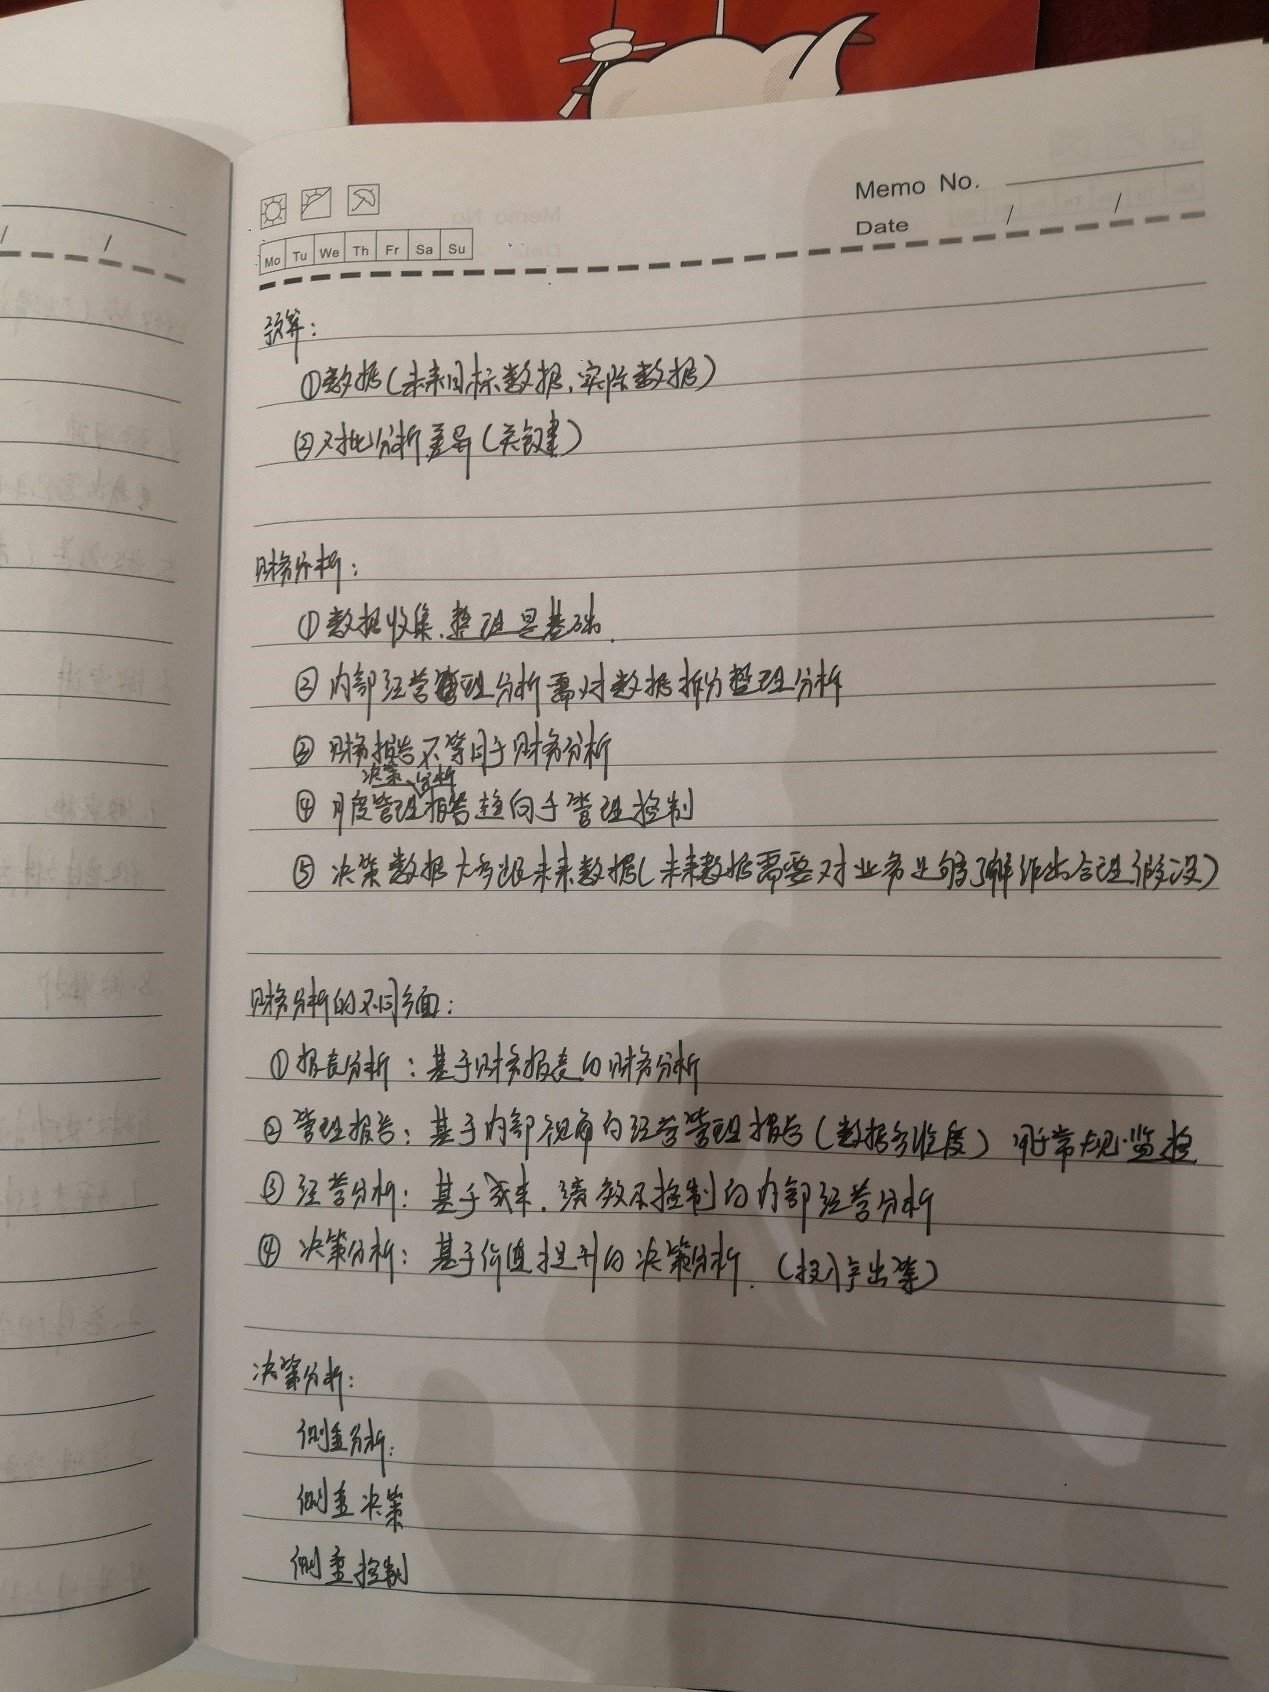 Memo No.
Date / /
Mo Tu We Th Fr Sa Su
预算：
①数据(未来目标数据、实际数据)
②对比分析差异(关键)
财务分析：
①数据收集、整理是基础.
②内部经营管理分析需对数据拆分整理分析
③财务报告不等同于财务分析
决策、分析
④月度管理报告趋向于管理控制
⑤决策数据大多跟未来数据(未来数据需要对业务足够了解作出合理假设)
财务分析的不同方面：
①报表分析：基于财务报表的财务分析
②管理报告：基于内部视角的经营管理报告(数据多维度) 用于常规监控
③经营分析：基于未来、绩效和控制的内部经营分析
④决策分析：基于价值提升的决策分析.(投入产出等)
决策分析：
侧重分析：
侧重决策
侧重控制